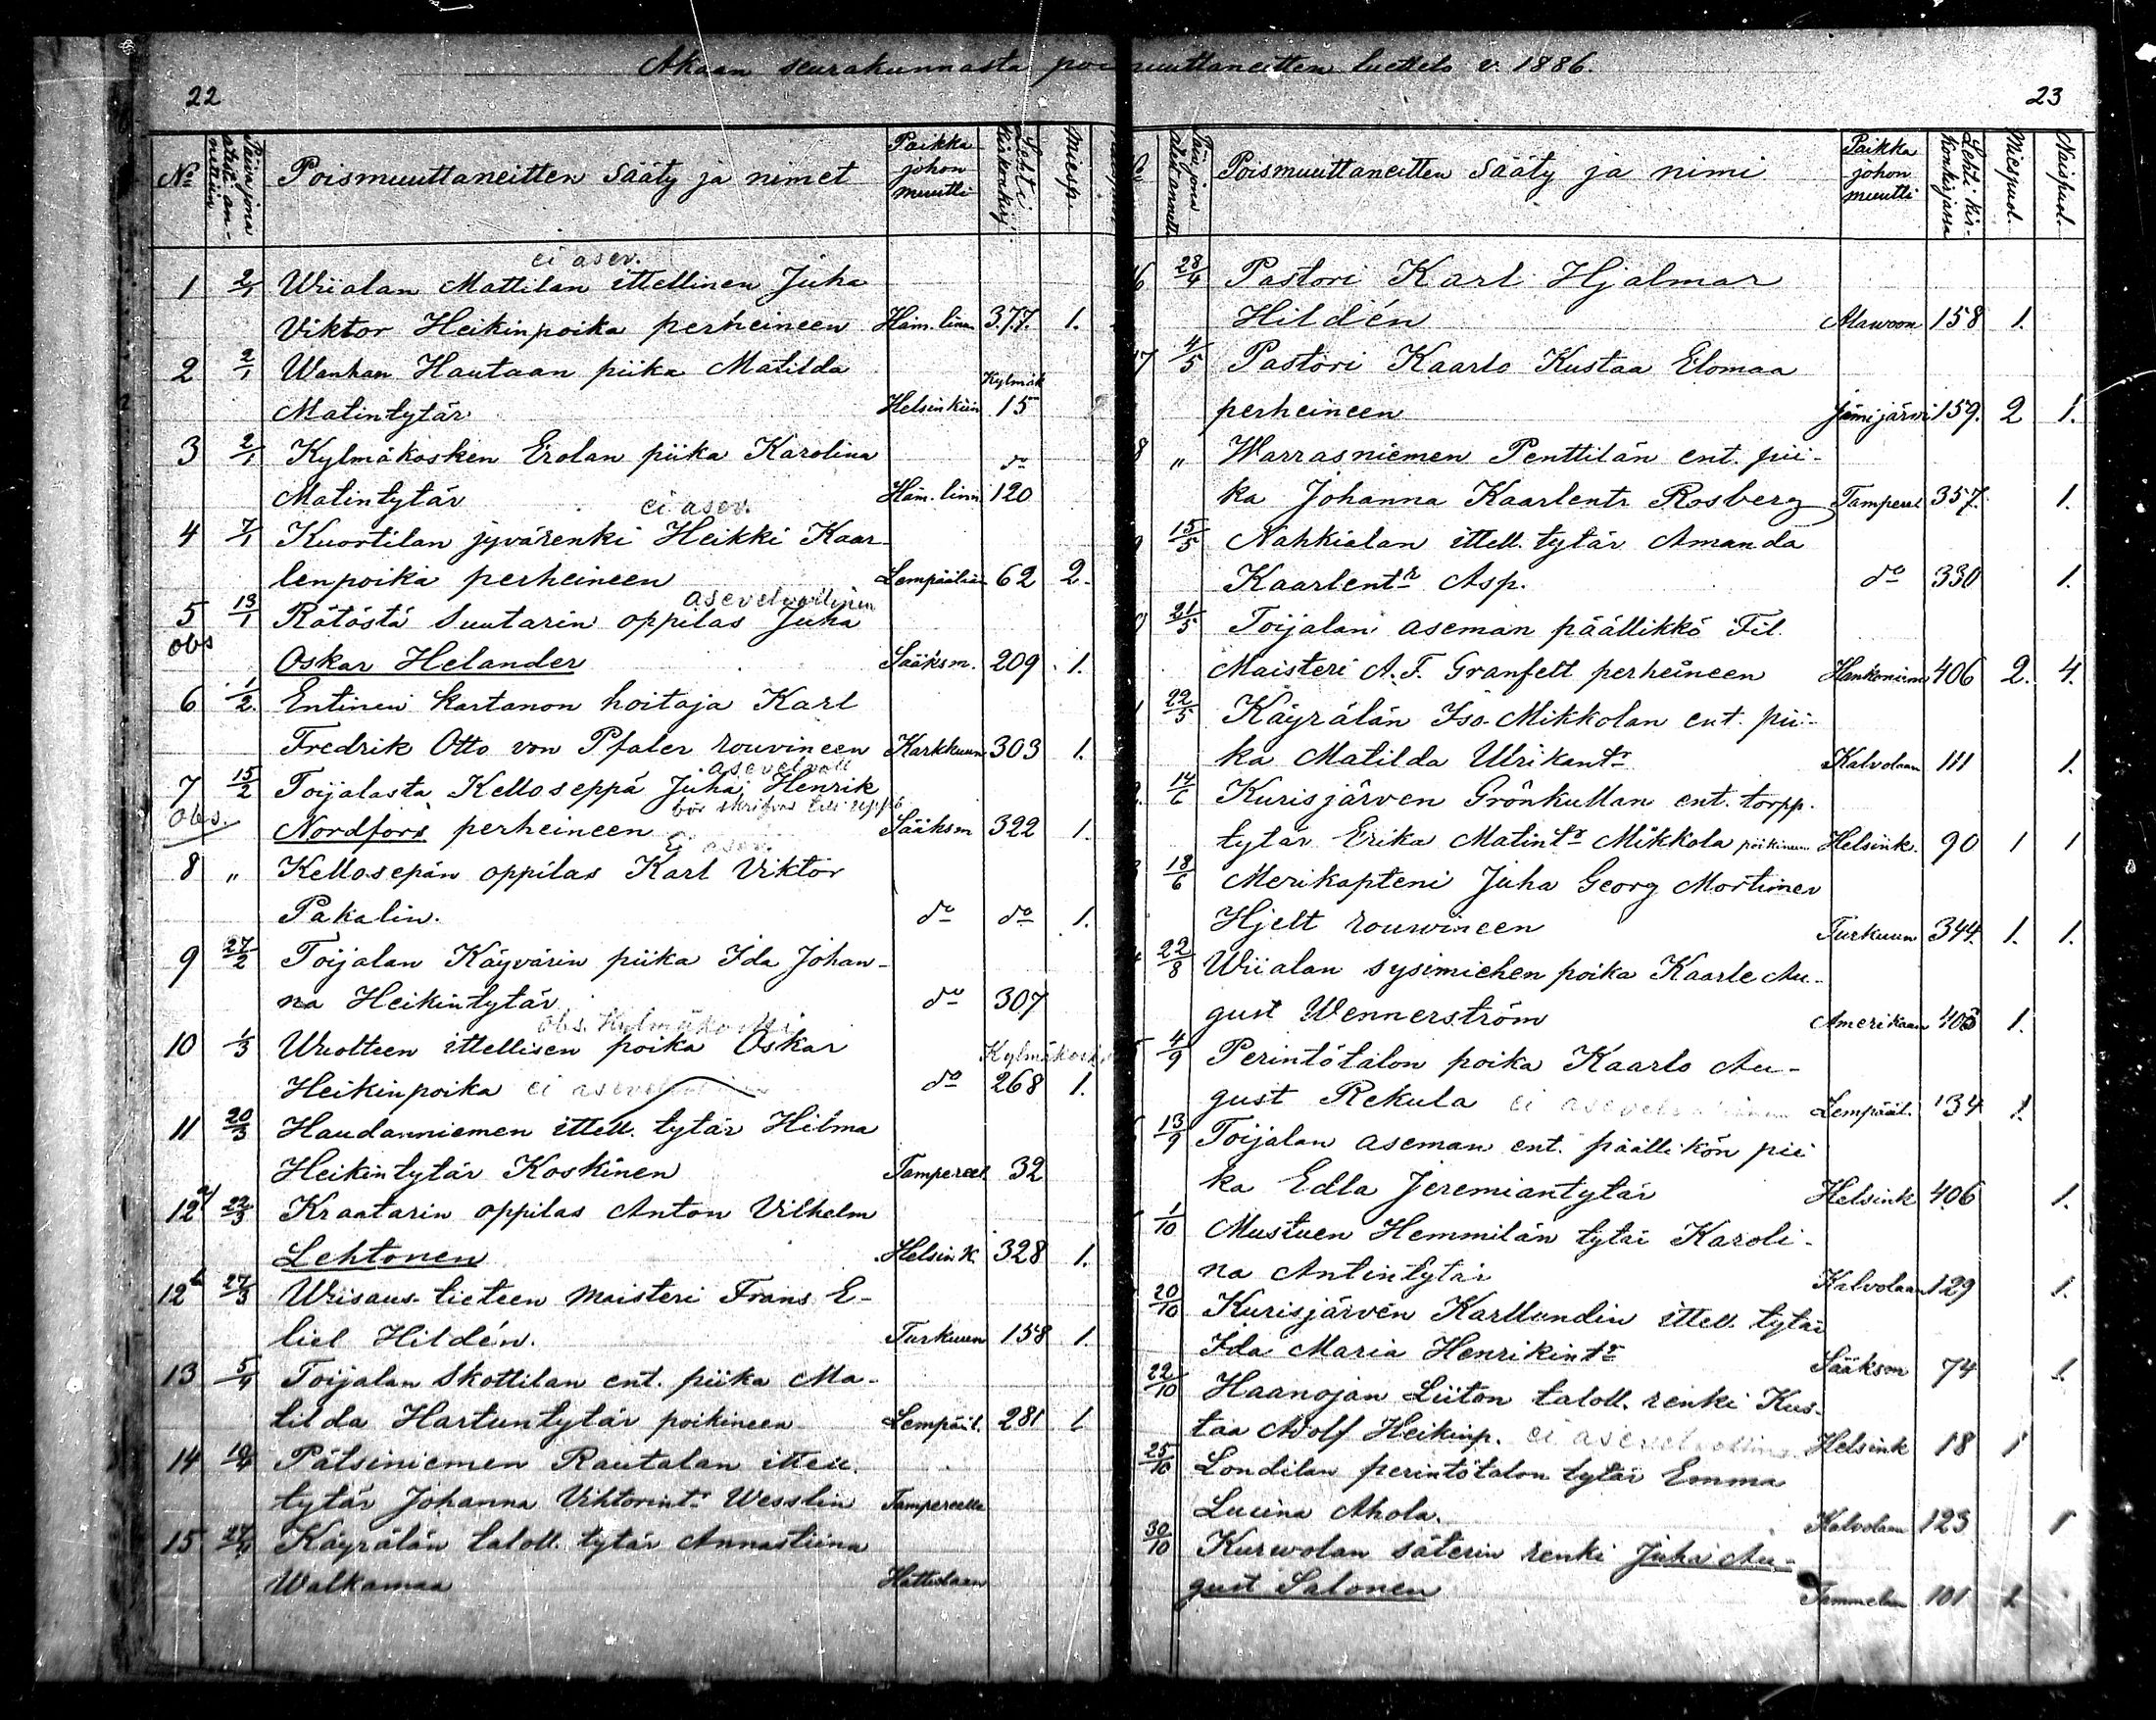 Akaan seurakunnasta poismuuttaneitten luettelo v. 1886.
22
No Päivä jona attesti annettiin Poismuuttaneitten sääty ja nimet Paikka johon muutti Lehti kirkonkirj. Miesp.
ei asev.
1 2/1 Wiialan Mattilan ittellinen Juha
Viktor Heikinpoika perheineen Häm. linn. 377. 1.
2 2/1 Wanhan Hautaan piika Matilda
Kylmäk
Matintytär Helsinkiin 15
3 2/1 Kylmäkosken Erolan piika Karolina do
Matintytär Häm. linn 120
ei asev.
4 7/1 Kuortilan jyvärenki Heikki Kaar-
lenpoika perheineen Lempäälään 62 2.
asevelvollinen
5 13/1 Rätöstä Suutarin oppilas Juha
obs
Oskar Helander Sääksm. 209 1.
6 1/2 Entinen kartanon hoitaja Karl
Fredrik Otto von Pfaler rouvineen Karkkuun 303 1.
asevelvoll
7 15/2 Toijalasta Kelloseppä Juha Henrik
bör skrifvas till
obs. Nordfors perheineen Sääksm 322 1.
Ei asev.
8 " Kellosepän oppilas Karl Viktor
Pakalin. do do 1.
9 27/2 Toijalan Käyvärin piika Ida Johan-
na Heikintytär do 307
obs. Kylmäkoski
10 1/3 Wuolteen ittellisen poika Oskar Kylmäkoski
Heikinpoika ei asevelvollinen do 268 1.
11 20/3 Haudanniemen ittell. tytär Hilma
Heikintytär Koskinen Tampereel. 32
12 a/ 22/3 Kraatarin oppilas Anton Vilhelm
Lehtonen Helsink 328 1.
12 b 27/3 Wiisaus-tieteen maisteri Frans E-
liel Hildén. Turkuun 158 1.
13 5/4 Toijalan Skottilan ent. piika Ma-
tilda Hartuntytär poikineen Lempääl. 281 1
14 10/4 Pätsiniemen Rautalan ittell.
tytär Johanna Vihtorintr Wesslin Tampereelle
15 27/4 Käyrälän taloll. tytär Annastiina
Walkamaa Hattulaan
23
No Päiv. jona atest annetti Poismuuttaneitten sääty ja nimi Paikka johon muutti Lehti kirkonkirjassa Miespuol. Naispuol.
6 28/4 Pastori Karl Hjalmar
Hildén Alawoon 158 1.
17 4/5 Pastori Kaarlo Kustaa Elomaa
perheineen Jämijärvi 159. 2 1.
8 " Warrasniemen Penttilän ent. pii-
ka Johanna Kaarlentr Rosberg Tampereel 357. 1.
9 15/5 Nahkialan ittell. tytär Amanda
Kaarlentr Asp. do 330 1.
21/5 Toijalan aseman päällikkö Fil.
Maisteri A. F. Granfelt perheineen Hankoniem 406 2. 4.
22/5 Käyrälän Iso-Mikkolan ent. pii-
ka Matilda Ulrikantr Kalvolaan 111 1.
14/6 Kurisjärven Grönkullan ent. torpp.
tytär Erika Matintr Mikkola poikineen Helsink. 90 1 1
18/6 Merikapteni Juha Georg Mortimer
Hjelt rouwineen Turkuun 344. 1. 1.
22/8 Wiialan sysimiehen poika Kaarle Au-
gust Wennerström Amerikaan 403 1.
4/9 Perintötalon poika Kaarlo Au-
gust Rekula ei asevelvollinen Lempääl. 134 1.
13/9 Toijalan aseman ent. päällikön pii
ka Edla Jeremiantytär Helsink 406 1.
1/10 Mustuen Hemmilän tytär Karoli-
na Antintytär Kalvolaan 129 1.
20/10 Kurisjärven Karllundin ittell. tytär
Ida Maria Henrikintr Sääksm 74 1.
22/10 Haanojan Liiton taloll. renki Kus-
taa Adolf Heikinp. ei asevelvollinen Helsink 18 1
25/10 Londilan perintötalon tytär Emma
Lucina Ahola. Kalvolaan 123 1
30/10 Kurwolan säterin renki Juha Au-
gust Salonen Tammelan 101 1